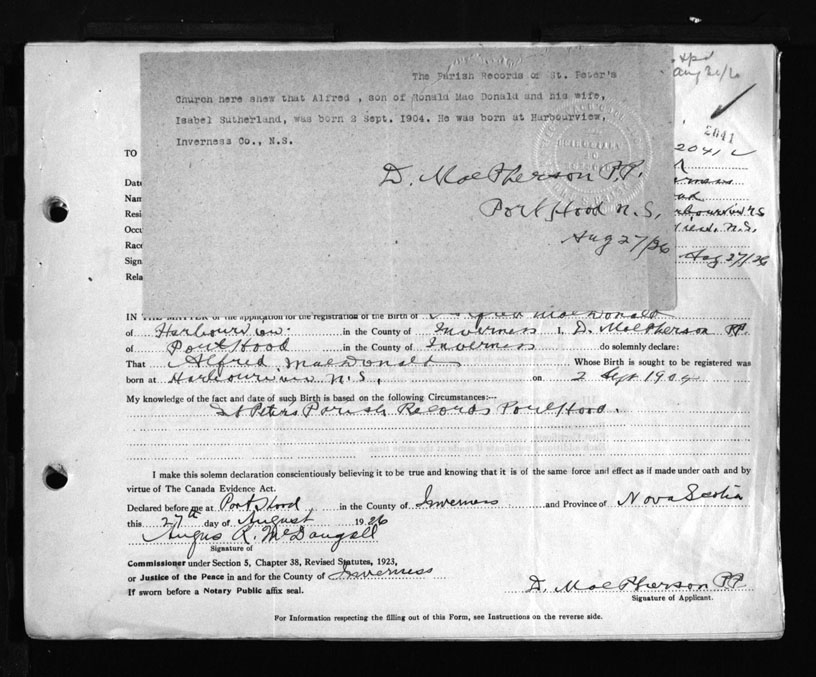 The Parish Records of St. Peter's
Church here shew that Alfred , son of Ronald Mac Donald and his wife,
Isabel Sutherland, was born 2 Sept. 1904. He was born at Harbourview,
Inverness Co., N.S.
D. MacPherson P.P.
Port Hood N.S.
Aug 27/26
2041
TO
2041
Date
Nam
Resi
N.S.
Occu
N.S.
Race
Sign
Aug 27/26
Rela
IN THE MATTER of the application for the registration of the Birth of Alfred MacDonald
of Harbourview in the County of Inverness I, D. MacPherson PP.
of Port Hood in the County of Inverness do solemnly declare:
That Alfred MacDonald Whose Birth is sought to be registered was
born at Harbourview N.S. on 2 Sept 1904
My knowledge of the fact and date of such Birth is based on the following Circumstances:—
St Peters Parish Records Port Hood.
I make this solemn declaration conscientiously believing it to be true and knowing that it is of the same force and effect as if made under oath and by
virtue of The Canada Evidence Act.
Declared before me at Port Hood in the County of Inverness and Province of Nova Scotia
this 27th day of August 1926
Angus R. McDougall
Signature of
Commissioner under Section 5, Chapter 38, Revised Statutes, 1923,
or Justice of the Peace in and for the County of Inverness
If sworn before a Notary Public affix seal.
D. MacPherson P.P.
Signature of Applicant.
For Information respecting the filling out of this Form, see Instructions on the reverse side.